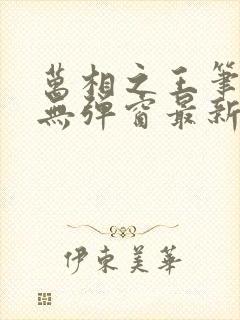 萬相之王筆
無彈窗最新
伊東美華